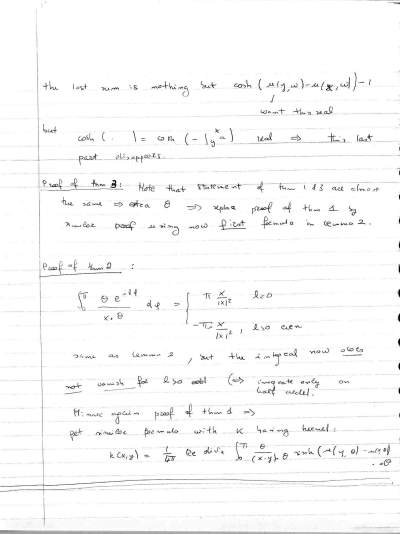 the last sum is nothing but cosh (u(y,w) - u(x,w)) - 1
want this real
but cosh (...) = cosh (- ∫ᵧˣ a) real ⇒ this last
part disappears.
Proof of thm 3: Note that statement of thm 1 & 3 are almost
the same ⇒ extra θ ⇒ replace proof of thm 1 by
similar proof using now first formula in lemma 2.
Proof of thm 2 :
∫₀^π θ e^{-lφ} / x·θ dφ = { π x/|x|² l=0
-π x/|x|² , l>0 even
same as lemma 2, but the integral now does
not vanish for l>0 odd (⇔ integrate only on
half circle).
Mimic again proof of thm 1 ⇒
get similar formula with K having kernel:
k(x,y) = 1/4π Re div ∫₀^π θ/(x-y)·θ sinh (u(y,θ) - u(x,θ)) dθ